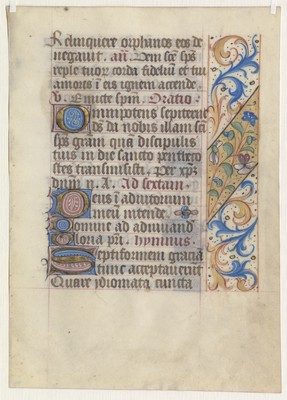 Relinquere orphanos eos de
negavit. añ. Veni scē sp̄s
reple tuor̄ corda fideliū et tui
amoris ī eis ignem accende.
V. Emitte spm̄. Oratio.
Omnipotens sempiterne
deus da nobis illam sci
sp̄s gratia quā discipulis
tuis in die sancto penthego
stes transmisisti. Per xp̄m
dnm̄ n. A. Ad sextam.
Deus ī adiutorium
meū intende.
Domine ad adiuvand
Gloria prī. hymnus.
Septiformem gratiā
tunc acceptaverūt
Quare idiomata cuncta